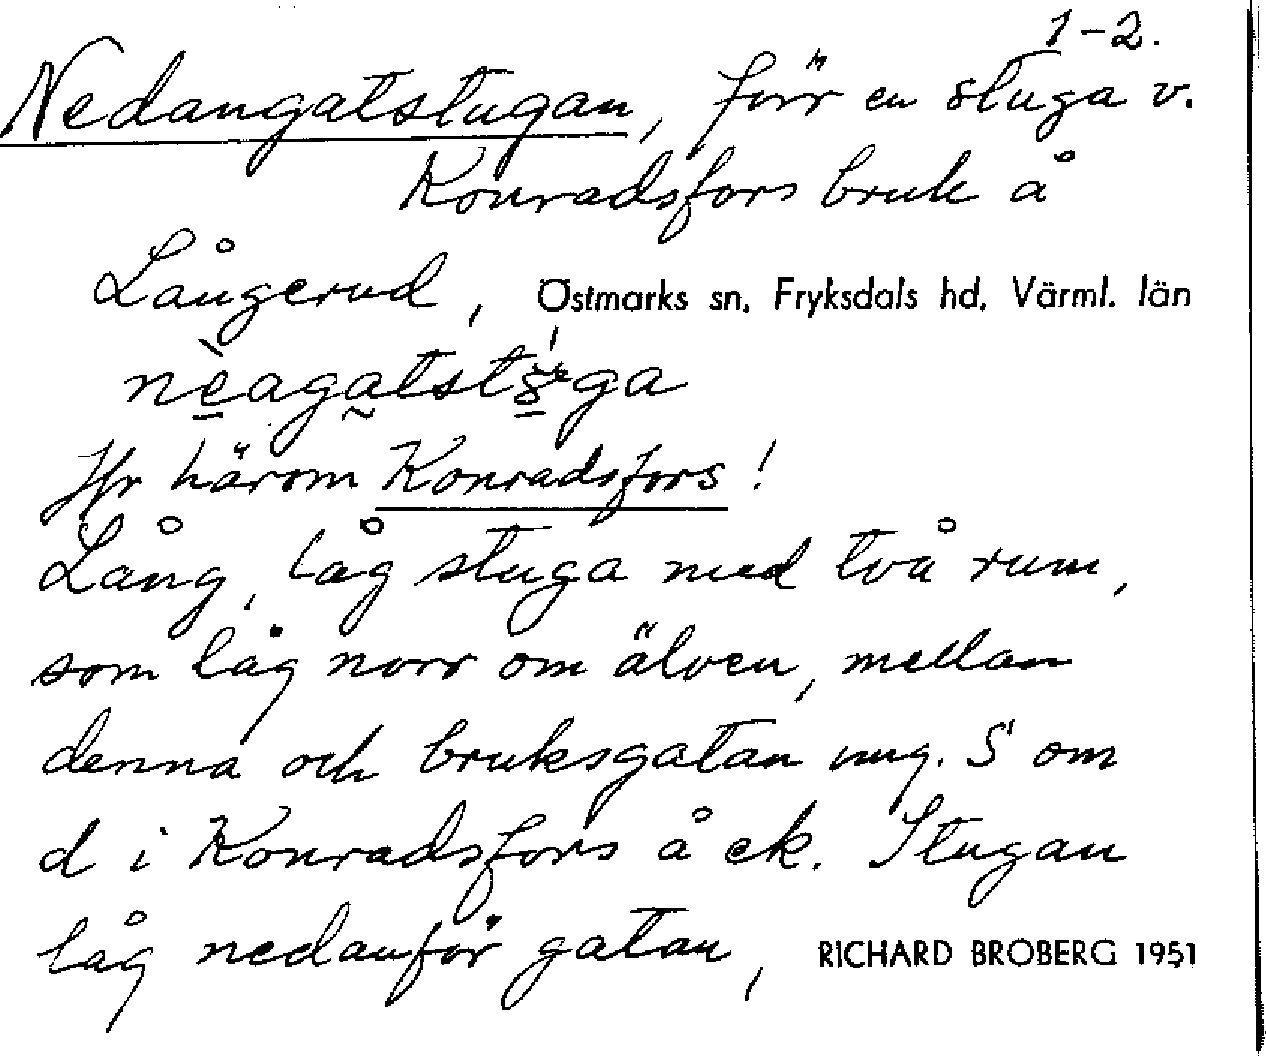 1-2.
Nedangatstugan, förr en stuga v.
Konradsfors bruk å
Långerud, Östmarks sn, Fryksdals hd, Värml. län
Jfr härom Konradsfors!
Lång, låg stuga med två rum,
som låg norr om älven, mellan
denna och bruksgatan ung. S om
d i Konradsfors å ek. Stugan
låg nedanför gatan, RICHARD BROBERG 1951